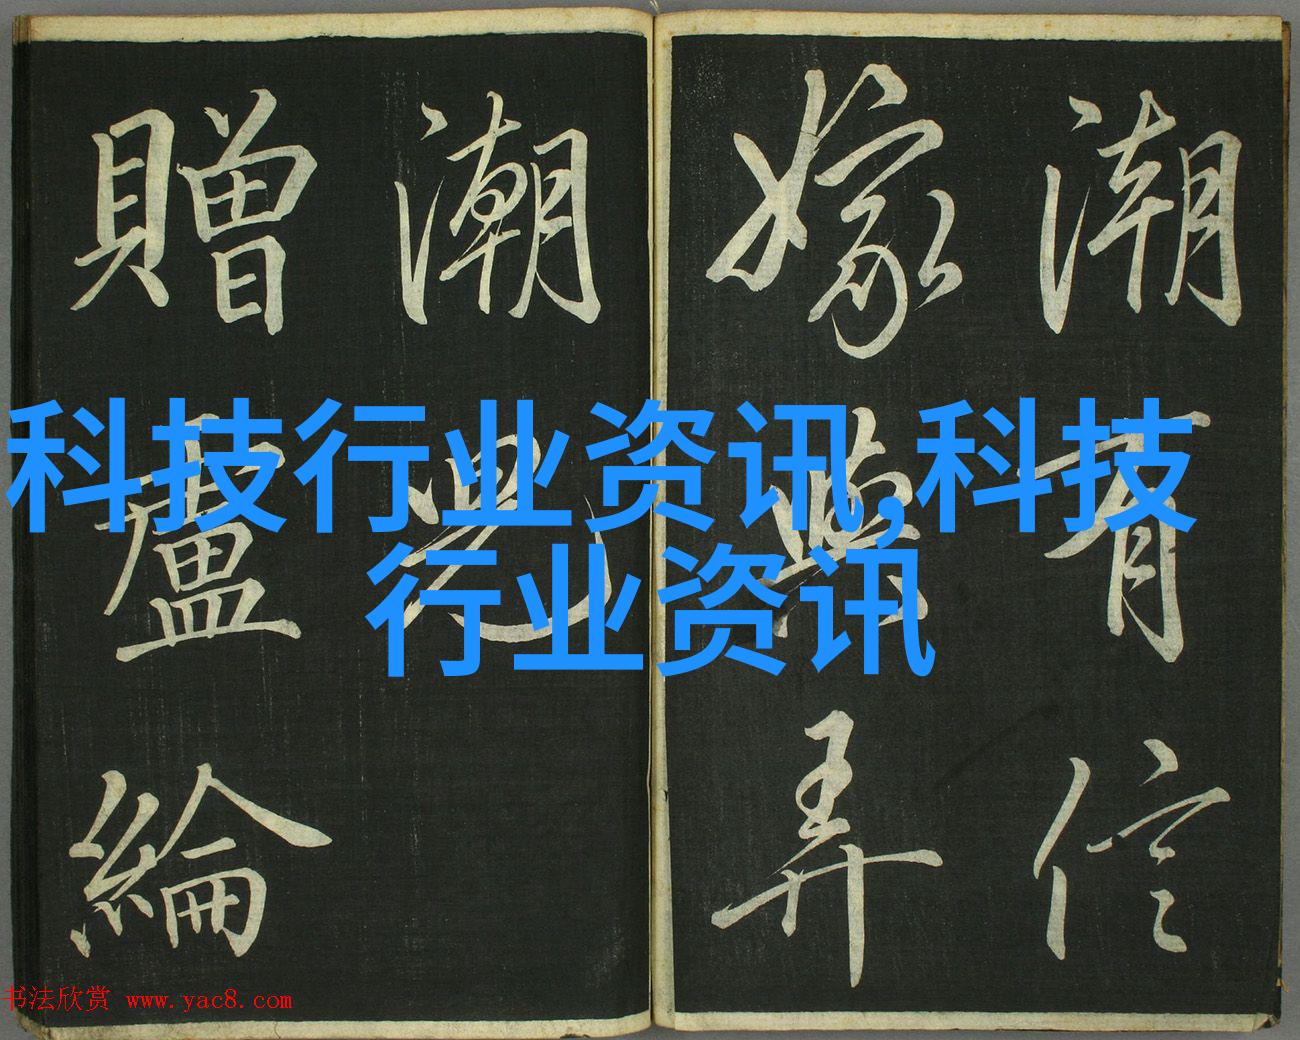 潮有信
嫁與弄
潮兒
贈盧綸
科技行业资讯,科技
行业资讯
书法欣赏 www.yac8.com